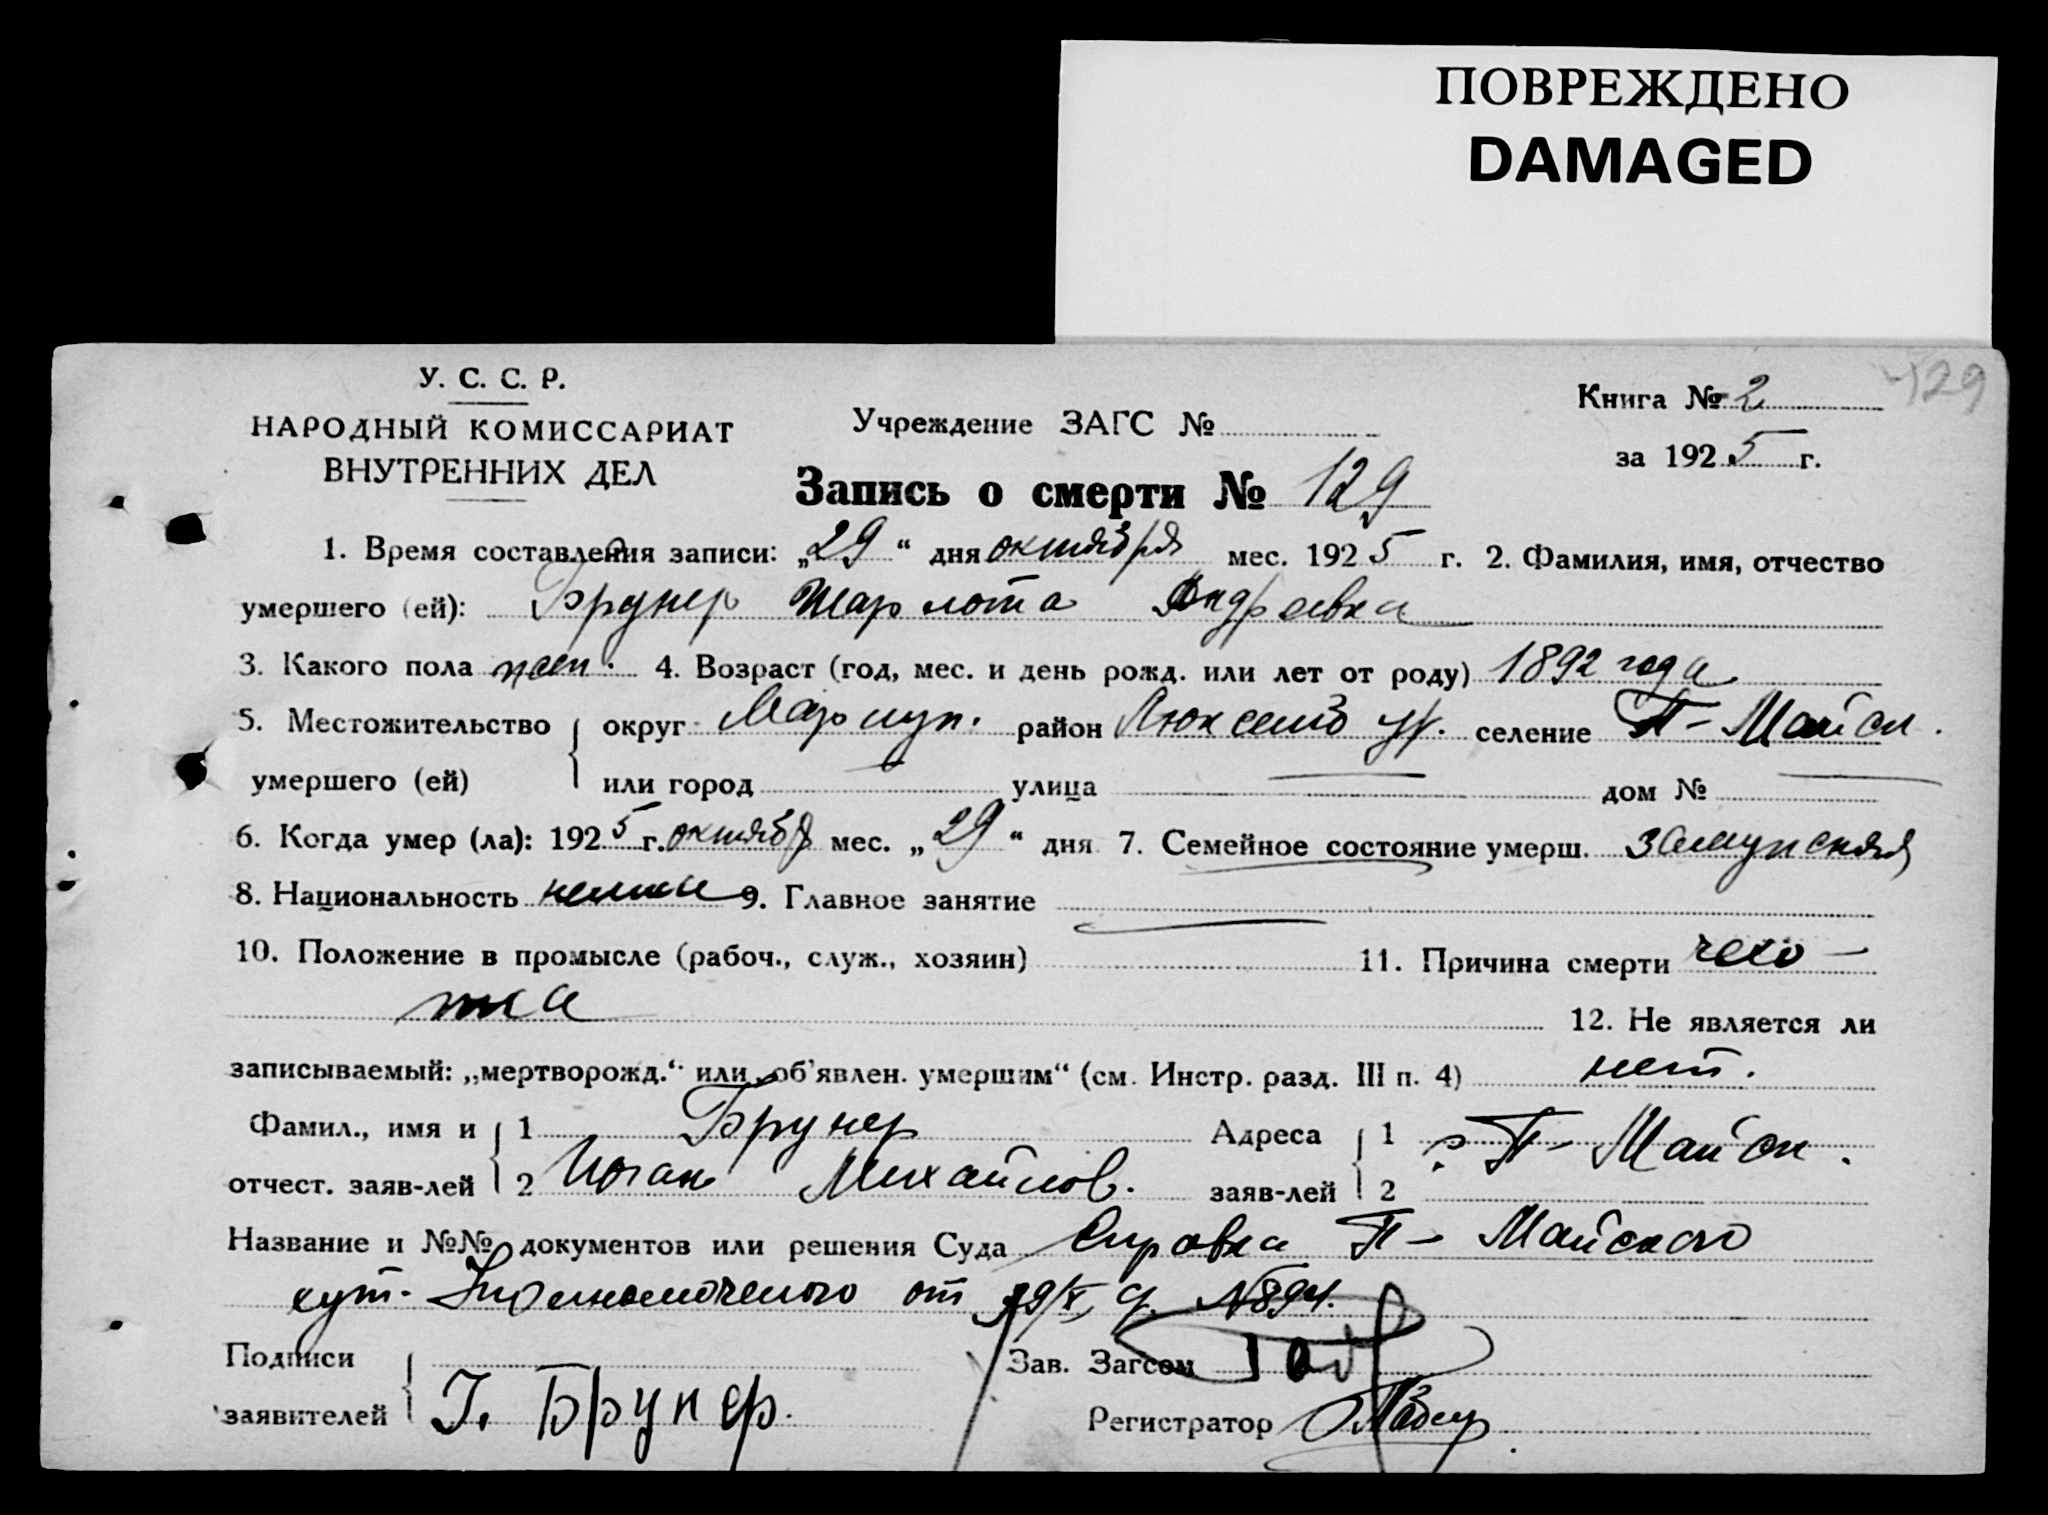 ПОВРЕЖДЕНО
DAMAGED
129
У. С. С. Р.
НАРОДНЫЙ КОМИССАРИАТ
ВНУТРЕННИХ ДЕЛ
Учреждение ЗАГС №
Книга № 2
за 1925 г.
Запись о смерти № 129
1. Время составления записи: „29“ дня октября мес. 1925 г. 2. Фамилия, имя, отчество
умершего (ей): Брунер Шарлота Андреевна
3. Какого пола жен. 4. Возраст (год, мес. и день рожд. или лет от роду) 1892 года
5. Местожительство округ Мариуп. район Люксемб ур. селение П-Майск.
умершего (ей) или город улица дом №
6. Когда умер (ла): 1925 г. октябр мес. „29“ дня 7. Семейное состояние умерш. замужняя
8. Национальность немка 9. Главное занятие
10. Положение в промысле (рабоч., служ., хозяин) 11. Причина смерти чахо-
тка
12. Не является ли
записываемый: „мертворожд.“ или „об'явлен. умершим“ (см. Инстр. разд. III п. 4) нет.
Фамил., имя и 1 Брунер Адреса 1 с. П-Майск.
отчест. заяв-лей 2 Иоган Михайлов. заяв-лей 2
Название и №№ документов или решения Суда Справка П-Майского
хут. Уполномоченого от 29/X с/г. №894.
Подписи Зав. Загсом
заявителей И. Брунер. Регистратор